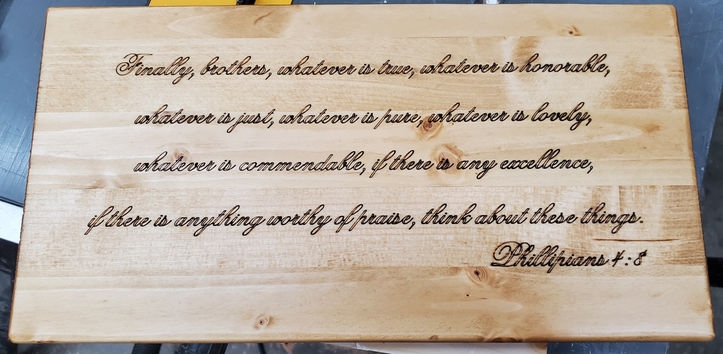 Finally, brothers, whatever is true, whatever is honorable,
whatever is just, whatever is pure, whatever is lovely,
whatever is commendable, if there is any excellence,
if there is anything worthy of praise, think about these things.
Phillipians 4:8